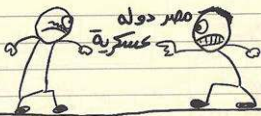 مصر دولة
عسكرية